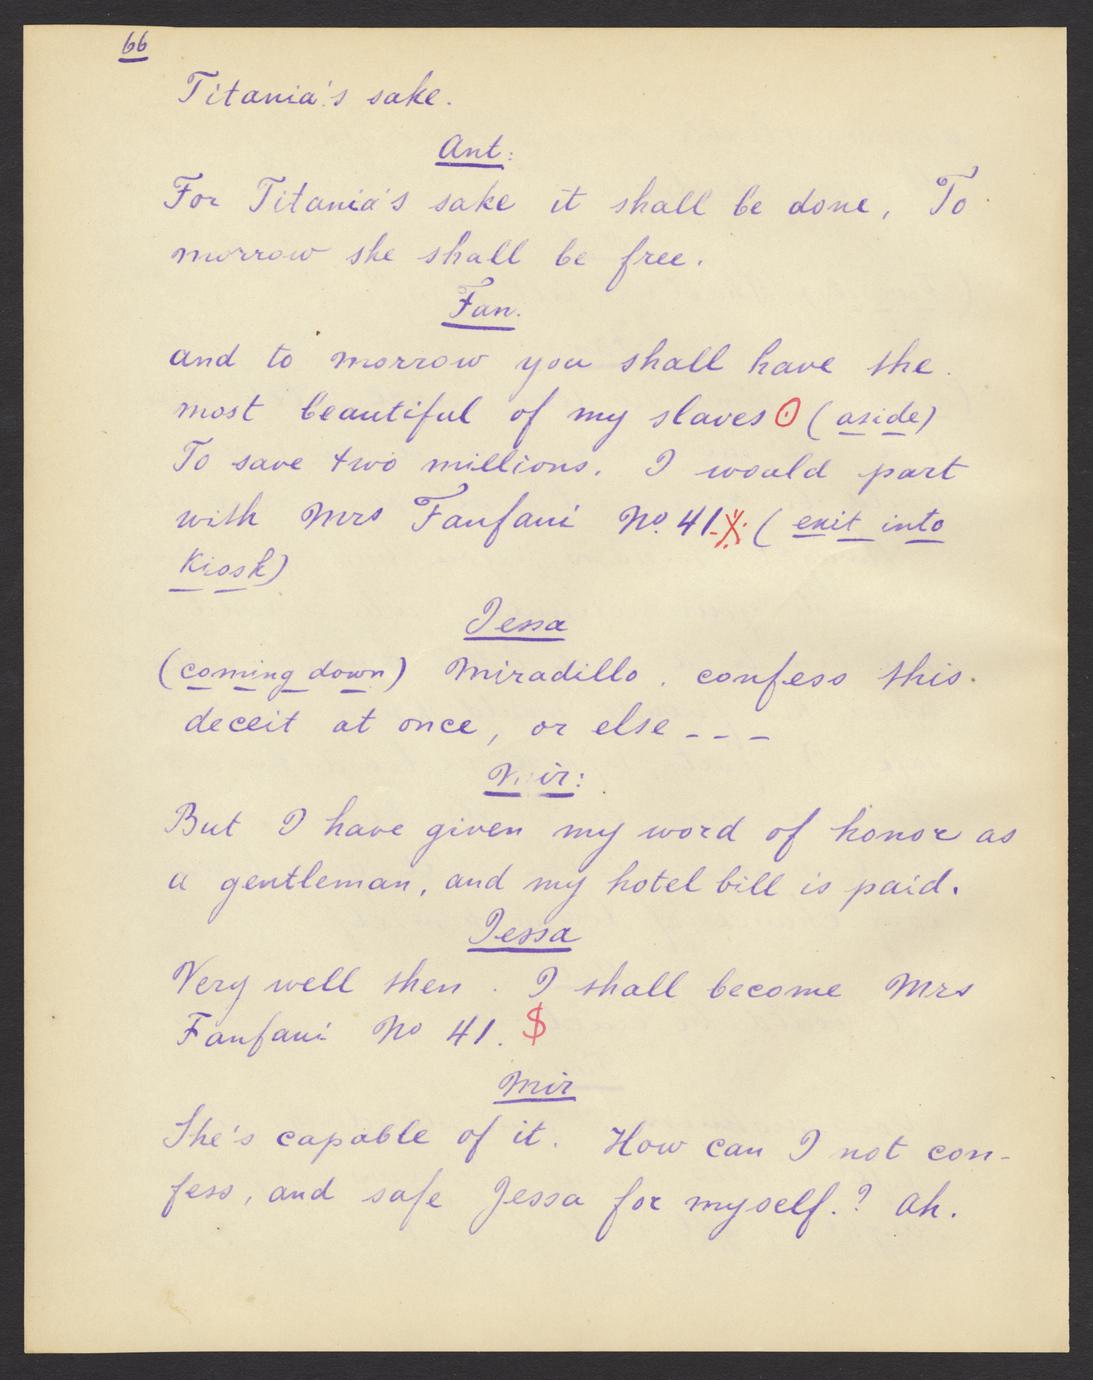 66
Titania's sake.
Ant:
For Titania's sake it shall be done, To
morrow she shall be free.
Fan.
and to morrow you shall have the
most beautiful of my slaves ⊙ (aside)
To save two millions. I would part
with Mrs Fanfani No. 41. X (exit into
Kiosk)
Jessa
(coming down) Miradillo. confess this
deceit at once, or else - - -
Mir:
But I have given my word of honor as
a gentleman, and my hotel bill is paid.
Jessa
Very well then. I shall become Mrs
Fanfani No 41. $
Mir
She's capable of it. How can I not con-
fess, and safe Jessa for myself.? Ah.